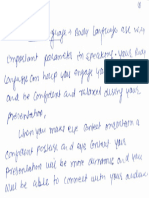 language & Body language are very
important parameter to speaking. your Body
language can help you engage your
and be confident and relaxed during your
presentation.
when you make eye contact maintain a
confident posture and eye contact your
presentation will be more dynamic and you
will be able to connect with your audience